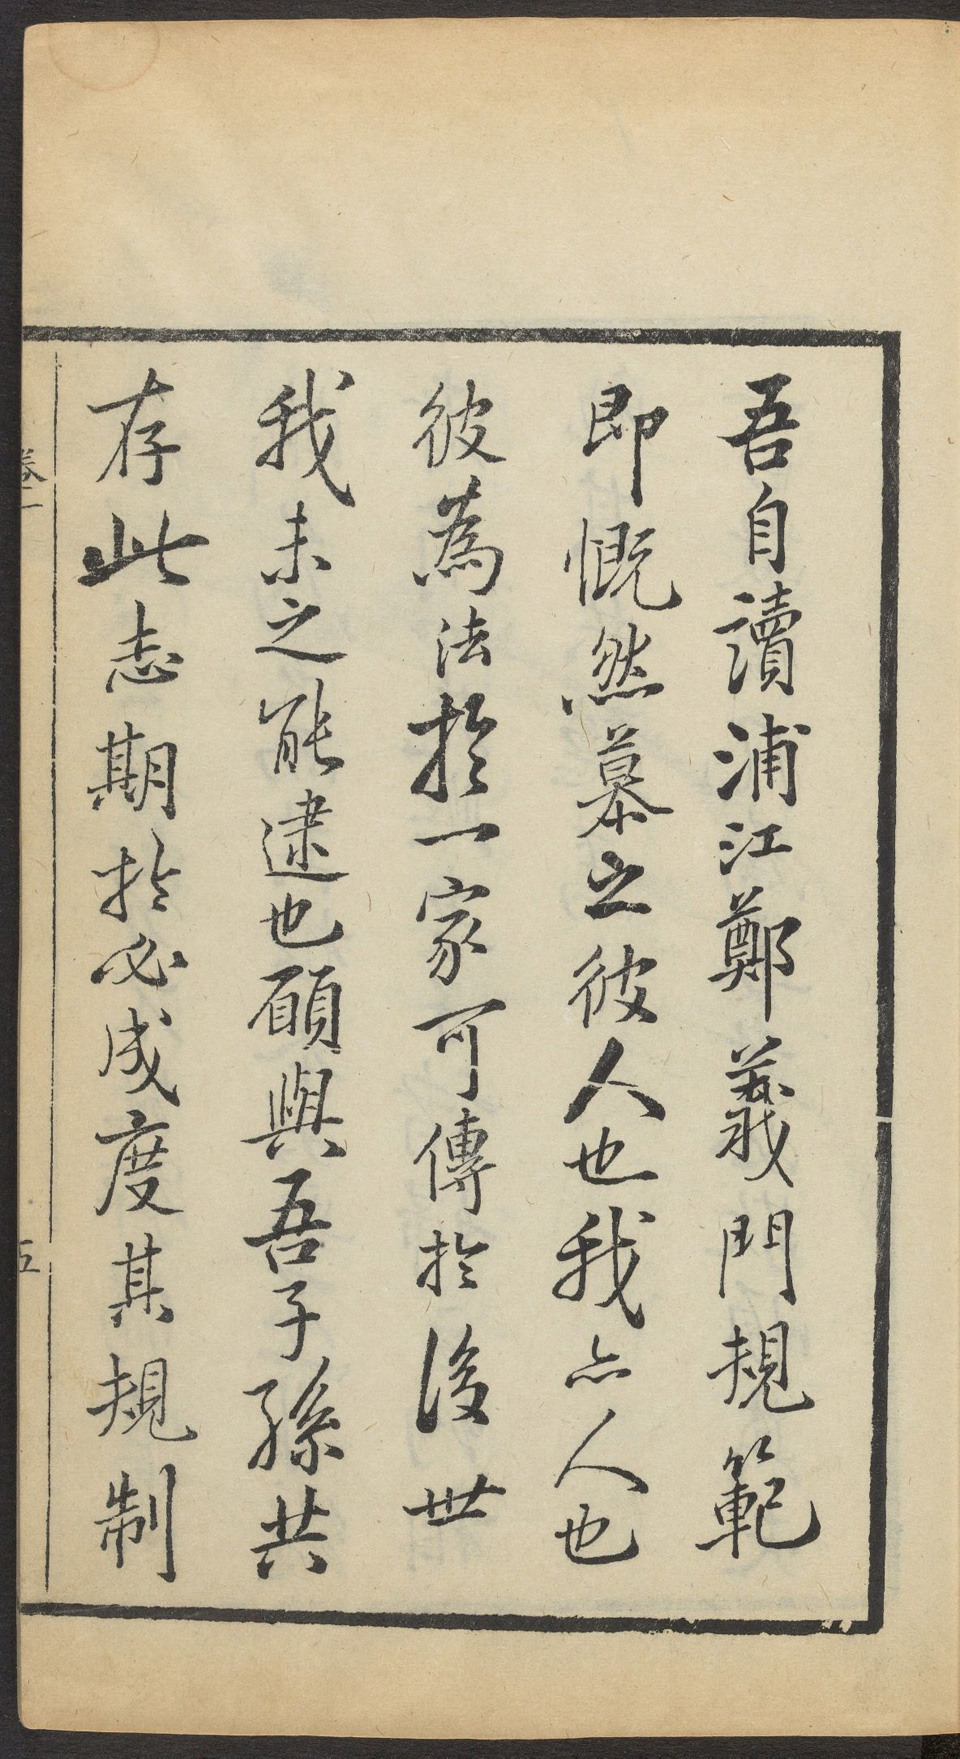 吾自讀浦江鄭義門規範
即慨然慕之彼人也我亦人也
彼為法於一家可傳於後世
我未之能逮也願與吾子孫共
存此志期於必成度其規制
卷二
五